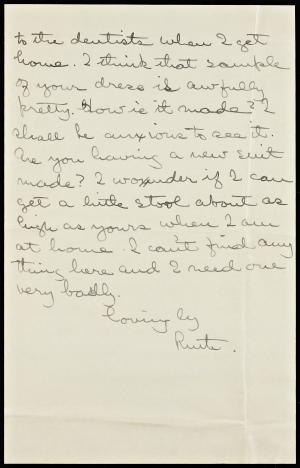 to the dentists when I get
home. I think that sample
of your dress is awfully
pretty. How is it made? I
shall be anxious to see it.
Are you having a new suit
made? I wonder if I can
get a little stool about as
high as yours when I am
at home. I can't find any
thing here and I need one
very badly.
Lovingly
Ruth.